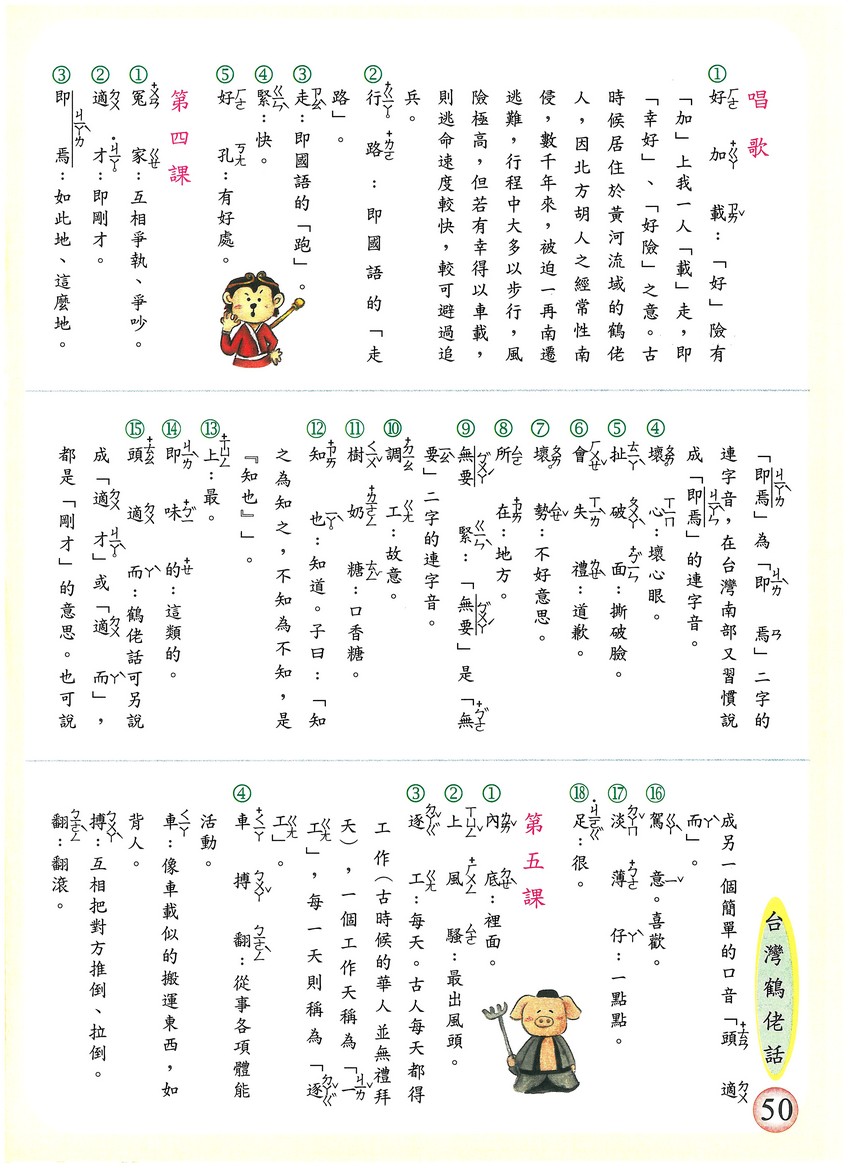 唱歌
①好加載：「好」險有
「加」上我一人「載」走，即
「幸好」、「好險」之意。古
時候居住於黃河流域的鶴佬
人，因北方胡人之經常性南
侵，數千年來，被迫一再南遷
逃難，行程中大多以步行，風
險極高，但若有幸得以車載，
則逃命速度較快，較可避過追
兵。
②行路：即國語的「走
路」。
③走：即國語的「跑」。
④緊：快。
⑤好孔：有好處。
第四課
①冤家：互相爭執、爭吵。
②適才：即剛才。
③即焉：如此地、這麼地。
「即焉」為「即焉」二字的
連字音，在台灣南部又習慣說
成「即焉」的連字音。
④壞心：壞心眼。
⑤扯破面：撕破臉。
⑥會失禮：道歉。
⑦壞勢：不好意思。
⑧所在：地方。
⑨無要緊：「無要」是「無
要」二字的連字音。
⑩調工：故意。
⑪樹奶糖：口香糖。
⑫知也：知道。子曰：「知
之為知之，不知為不知，是
『知也』」。
⑬上：最。
⑭即味的：這類的。
⑮頭適而：鶴佬話可另說
成「適才」或「適而」，
都是「剛才」的意思。也可說
成另一個簡單的口音「頭適
而」。
⑯駕意。喜歡。
⑰淡薄仔：一點點。
⑱足：很。
第五課
①內底：裡面。
②上風騷：最出風頭。
③逐工：每天。古人每天都得
工作（古時候的華人並無禮拜
天），一個工作天稱為「一
工」，每一天則稱為「逐
工」。
④車搏翻：從事各項體能
活動。
車：像車載似的搬運東西，如
背人。
搏：互相把對方推倒、拉倒。
翻：翻滾。
台灣鶴佬話
50